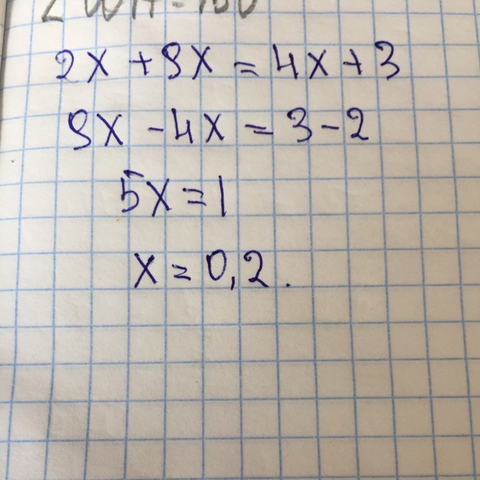 2x + 9x = 4x + 3
9x - 4x = 3 - 2
5x = 1
x = 0,2.